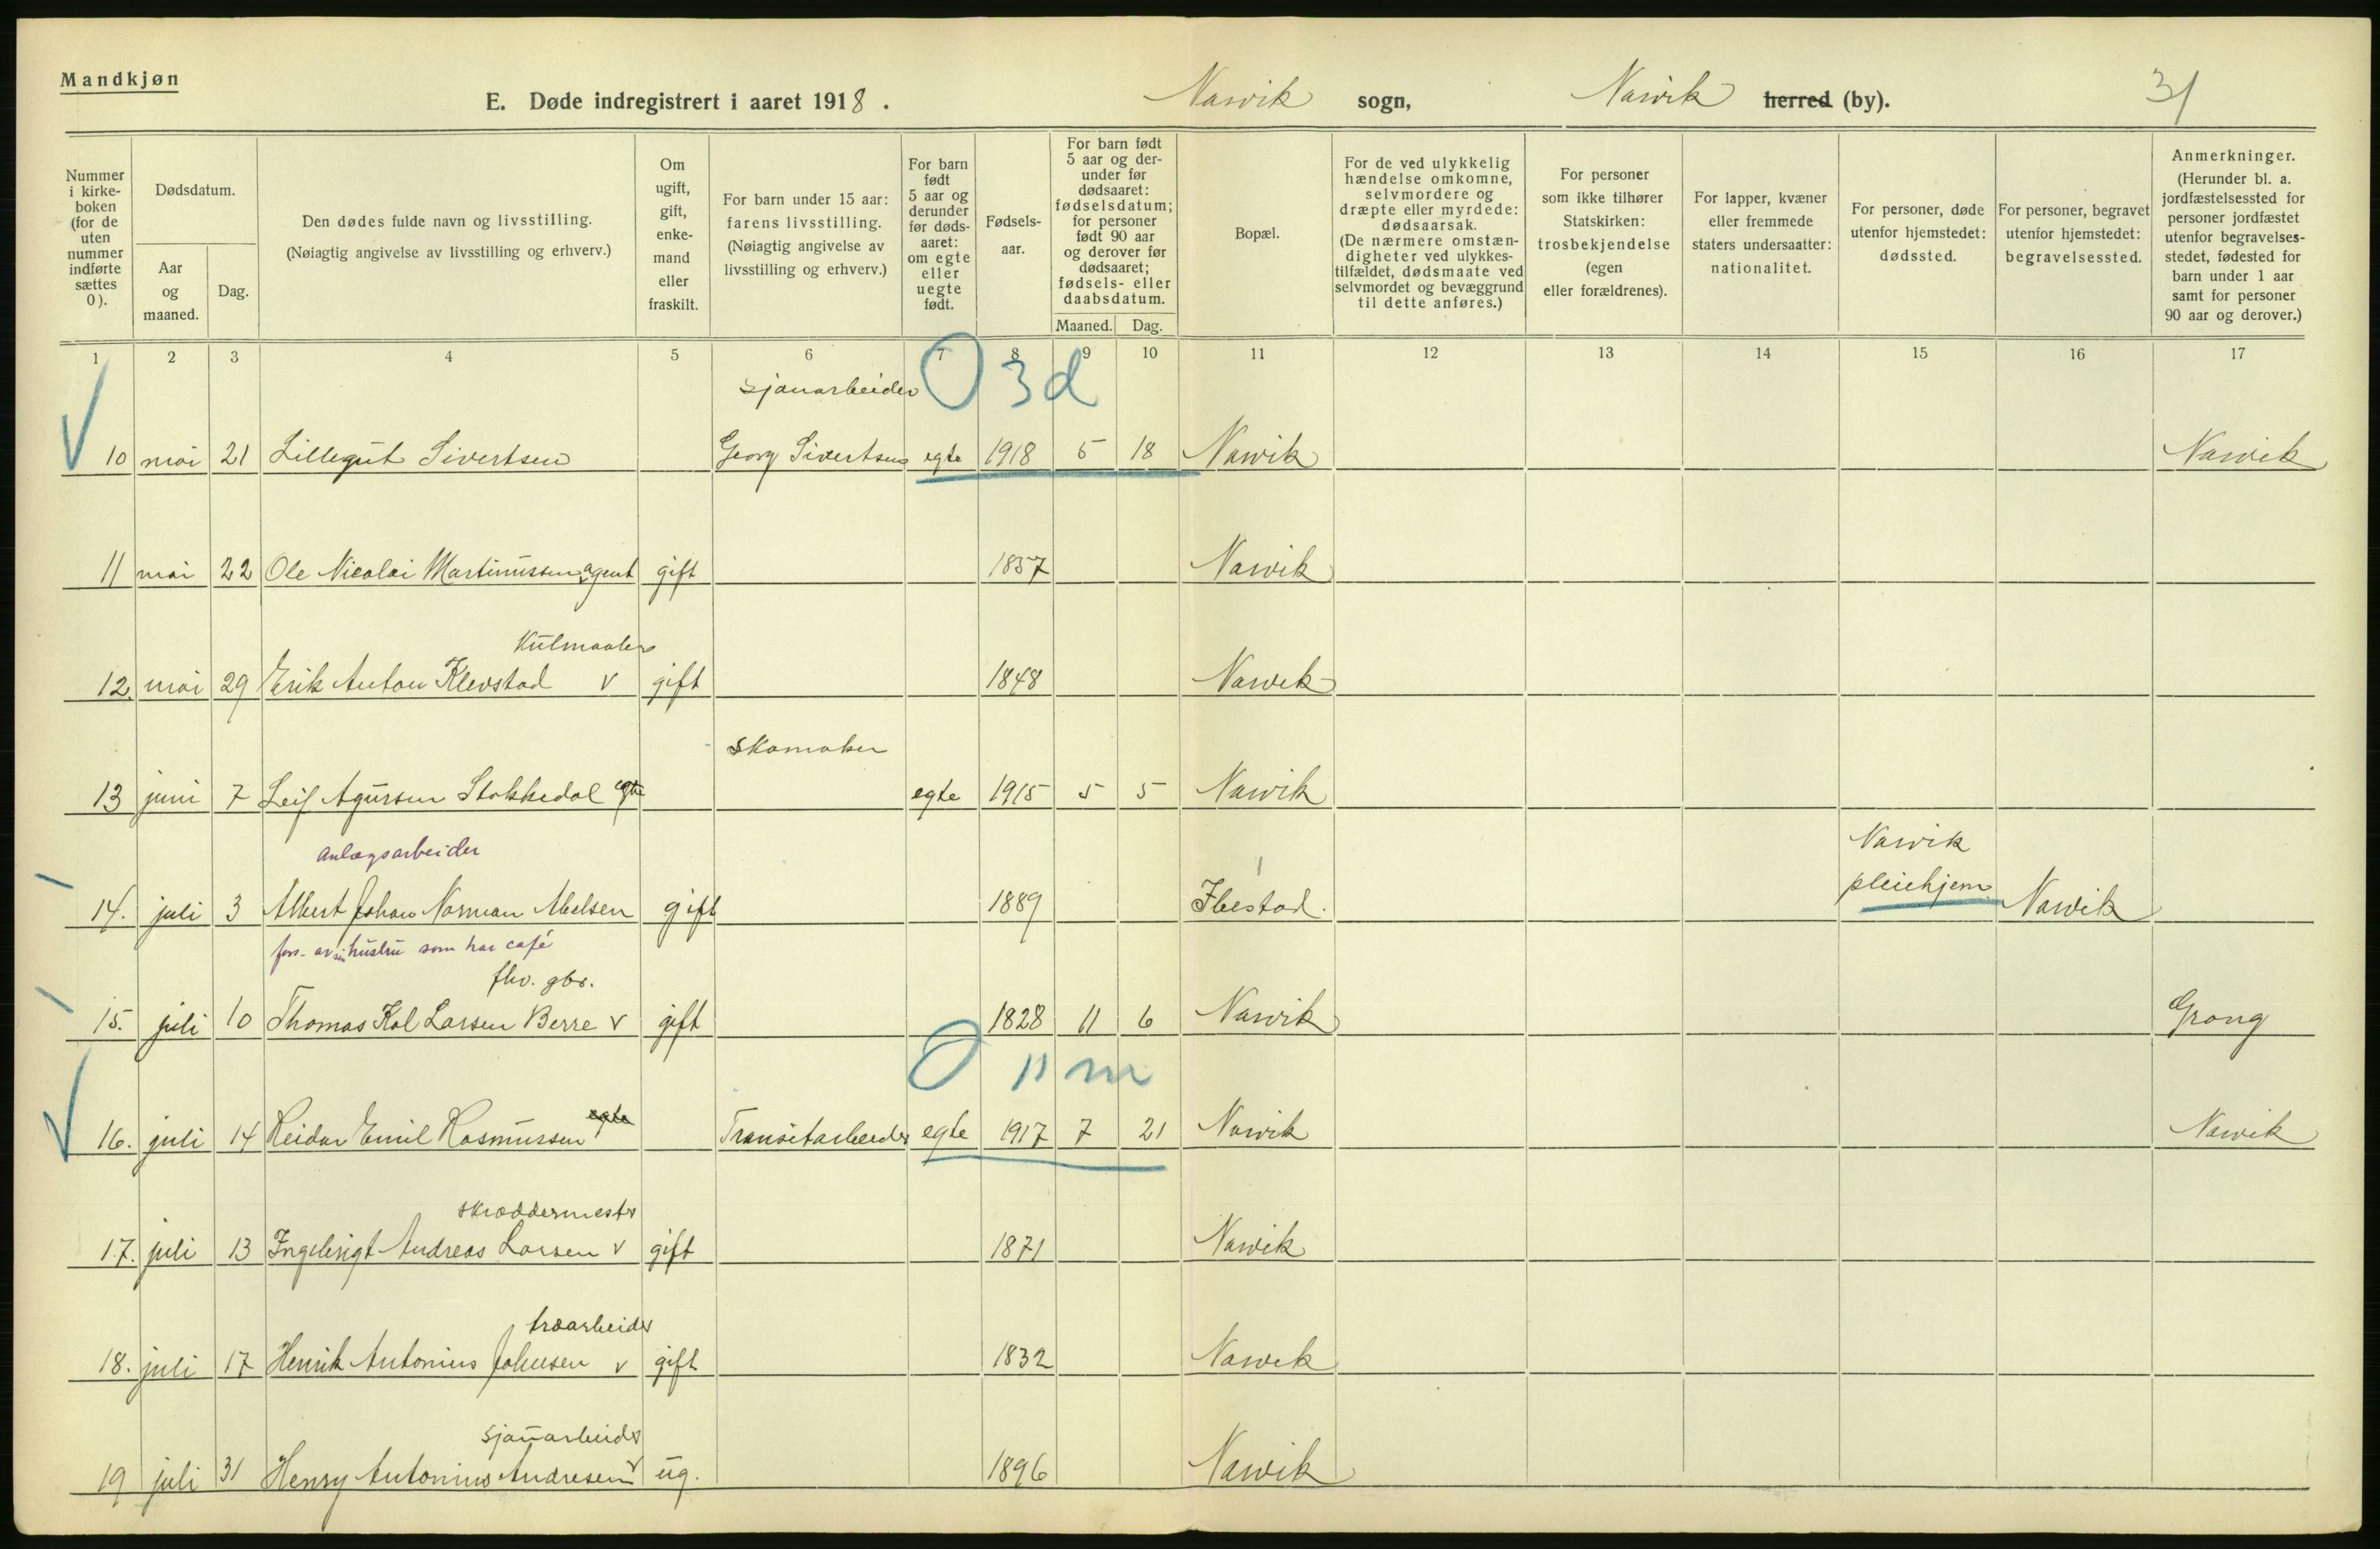 Mandkjøn
E. Døde indregistrert i aaret 1918.
Narvik sogn, Narvik herred (by).
31
Nummer i kirke-boken (for de uten nummer indførte sættes 0).
Dødsdatum.
Aar og maaned.
Dag.
Den dødes fulde navn og livsstilling.
(Nøiagtig angivelse av livsstilling og erhverv.)
Om ugift, gift, enke-mand eller fraskilt.
For barn under 15 aar: farens livsstilling. (Nøiagtig angivelse av livsstilling og erhverv.)
For barn født 5 aar og derunder før døds-aaret: om egte eller uegte født.
Fødsels-aar.
For barn født 5 aar og der-under før dødsaaret: fødselsdatum; for personer født 90 aar og derover før dødsaaret; fødsels- eller daabsdatum.
Maaned. Dag.
Bopæl.
For de ved ulykkelig hændelse omkomne, selvmordere og dræpte eller myrdede: dødsaarsak. (De nærmere omstæn-digheter ved ulykkes-tilfældet, dødsmaate ved selvmordet og bevæggrund til dette anføres.)
For personer som ikke tilhører Statskirken: trosbekjendelse (egen eller forældrenes).
For lapper, kvæner eller fremmede staters undersaatter: nationalitet.
For personer, døde utenfor hjemstedet: dødssted.
For personer, begravet utenfor hjemstedet: begravelsessted.
Anmerkninger. (Herunder bl. a. jordfæstelsessted for personer jordfæstet utenfor begravelses-stedet, fødested for barn under 1 aar samt for personer 90 aar og derover.)
1 2 3 4 5 6 7 8 9 10 11 12 13 14 15 16 17
sjauarbeider 3 d
10 mai 21 Lillegut Sivertsen Georg Sivertsen egte 1918 5 18 Narvik Narvik
11 mai 22 Ole Nicolai Martinussen, agent gift 1857 Narvik
Kulmaaler
12. mai 29 Erik Anton Klevstad v gift 1848 Narvik
skomaker
13 juni 7 Leif Agursen Stokkedal egte egte 1915 5 5 Narvik
Anlægsarbeider Narvik
pleiehjem
14. juli 3 Albert Johan Norman Abelsen gift 1889 Ibestad. Narvik
fors. av sin hustru som har café
fhv. gbr.
15. juli 10 Thomas Kol Larsen Berre v gift 1828 11 6 Narvik Grong
11 m
16. juli 14 Reidar Emil Rasmussen egte Transitarbeider egte 1917 7 21 Narvik Narvik
skræddermester
17. juli 13 Ingebrigt Andreas Larsen v gift 1871 Narvik
træarbeider
18. juli 17 Henrik Antonius Johnsen v gift 1832 Narvik
sjauarbeider
19 juli 31 Henry Antonius Andresen v ug. 1896 Narvik